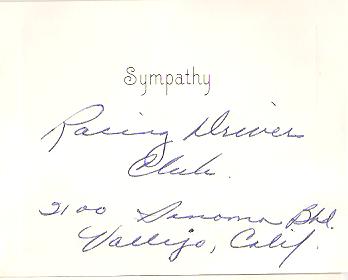 Sympathy
Racing Drivers
Club.
2100 Sonoma Blvd.
Vallejo, Calif.